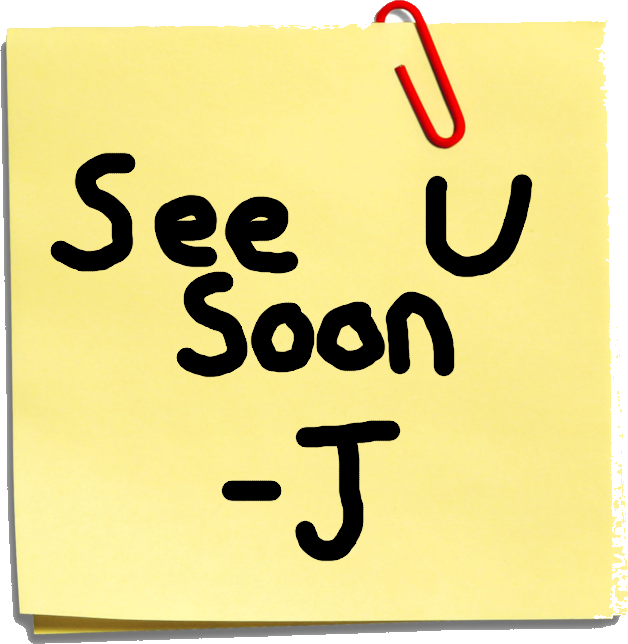 See U
Soon
-J